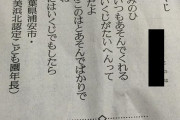 みのひ
いつもあそんでくれる
いくじがたいへんって
だよ
このはとあそんでばかりで
はいくじでもしたら
葉県浦安市・
美浜北認定こども園年長)